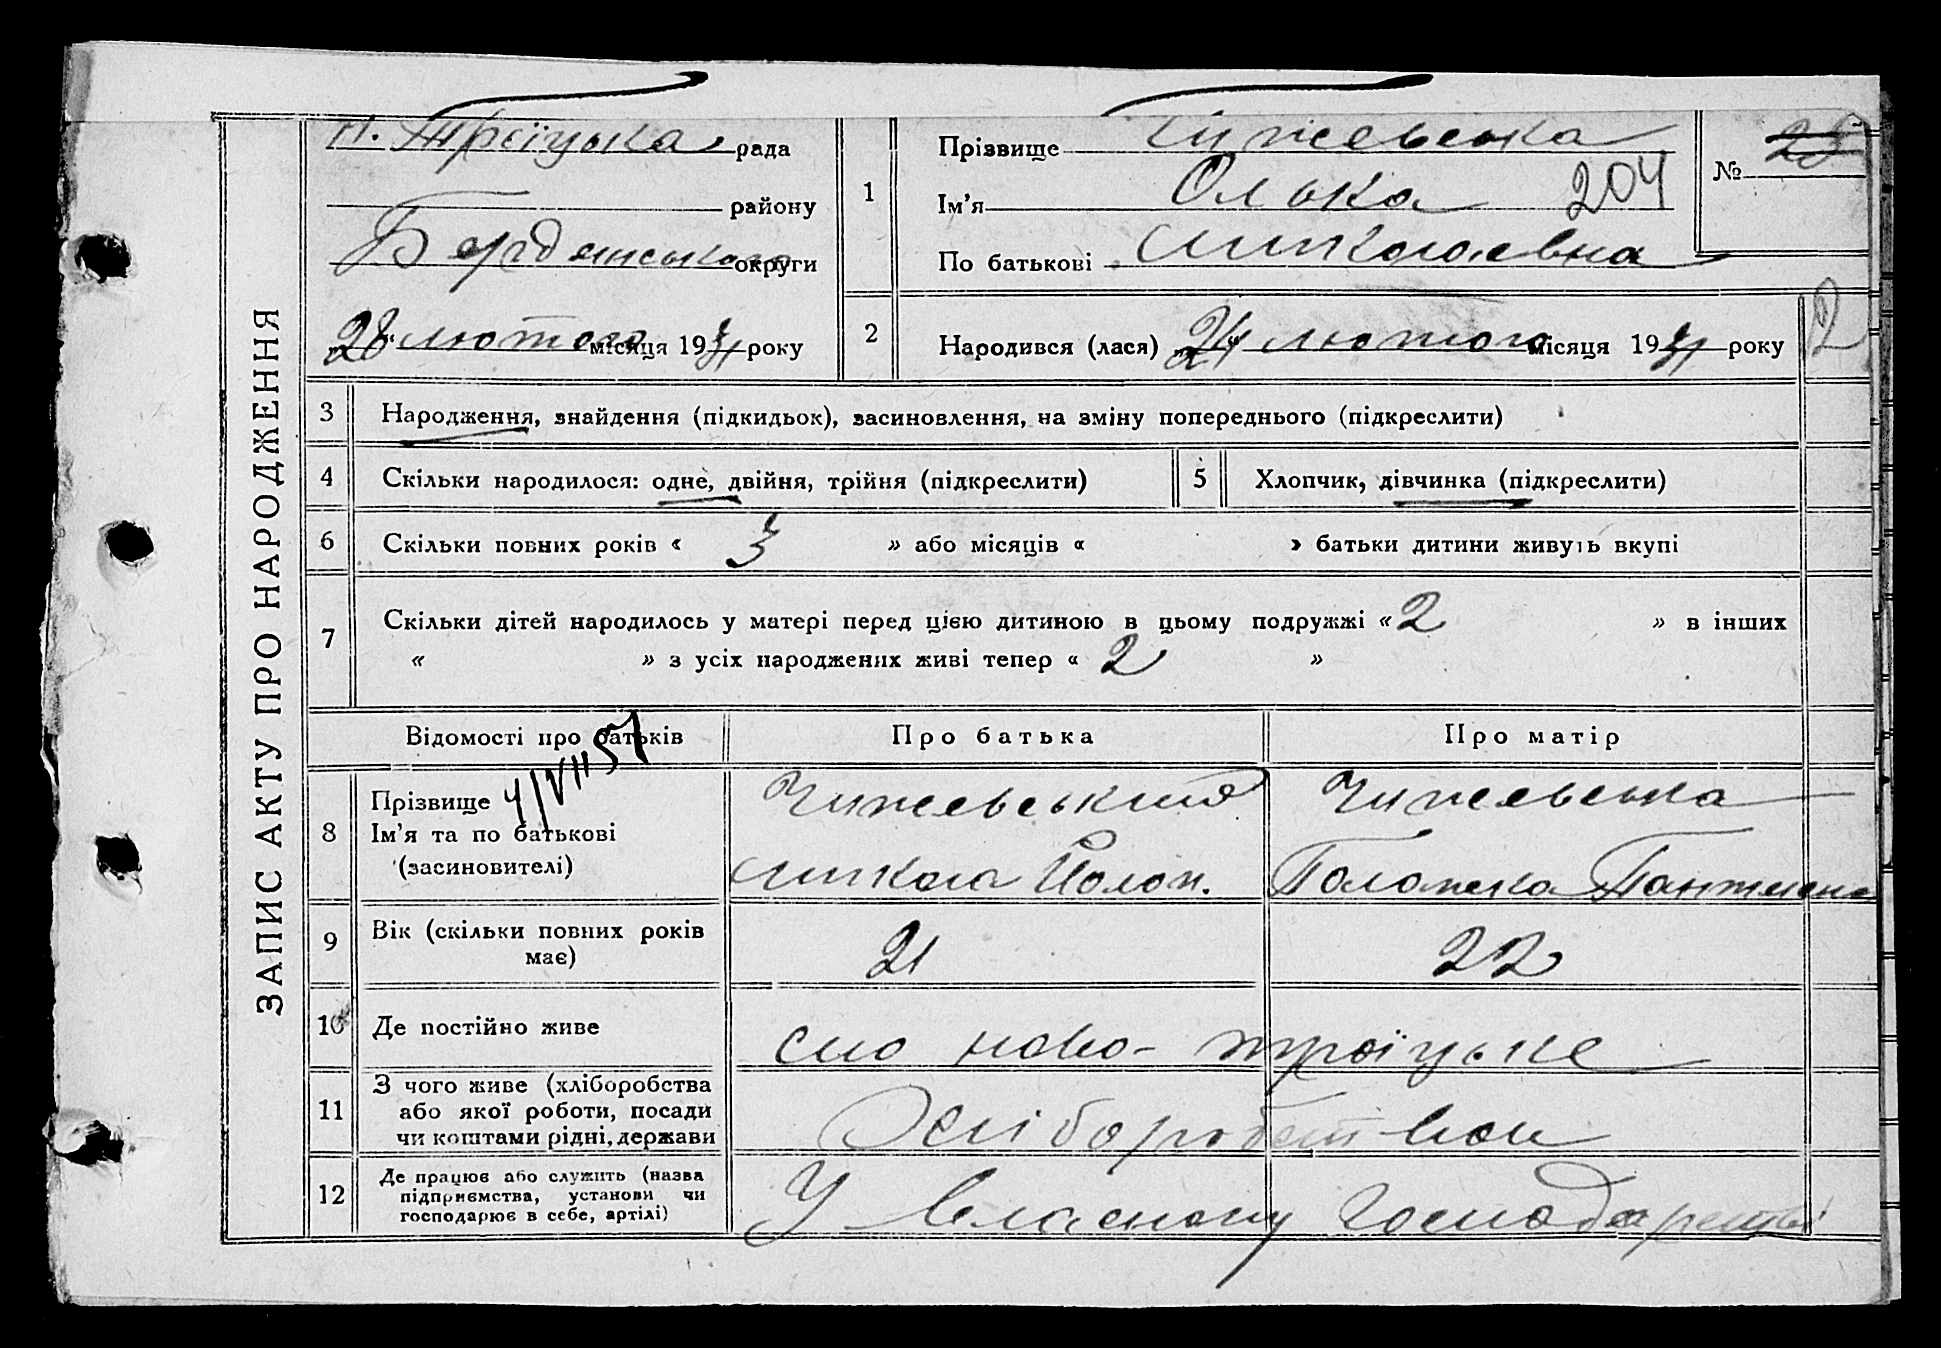 ЗАПИС АКТУ ПРО НАРОДЖЕННЯ
Н. Троїцька рада
району
Бердянського округи
28 лютого місяця 1931 року
1
Прізвище Чижевська
Ім'я Олька 204
По батькові Миколаевна
№ 28
2
Народився (лася) 24 лютого місяця 1931 року
2
3 Народження, знайдення (підкидьок), засиновлення, на зміну попереднього (підкреслити)
4 Скільки народилося: одне, двійня, трійня (підкреслити)
5 Хлопчик, дівчинка (підкреслити)
6 Скільки повних років « 3 » або місяців « » батьки дитини живуть вкупі
7 Скільки дітей народилось у матері перед цією дитиною в цьому подружжі « 2 » в інших
« » з усіх народжених живі тепер « 2 »
Відомості про батьків Про батька Про матір
4/VII 57
8 Прізвище
Ім'я та по батькові
(засиновителі)
Чижевський
Микола Полон.
Чижевська
Положка
9 Вік (скільки повних років
має)
21 22
10 Де постійно живе
село ново-троїцьке
11 З чого живе (хліборобства
або якої роботи, посади
чи коштами рідні, держави
Хліборобством
12 Де працює або служить (назва
підприємства, установи чи
господарює в себе, артілі)
У власному господарстві